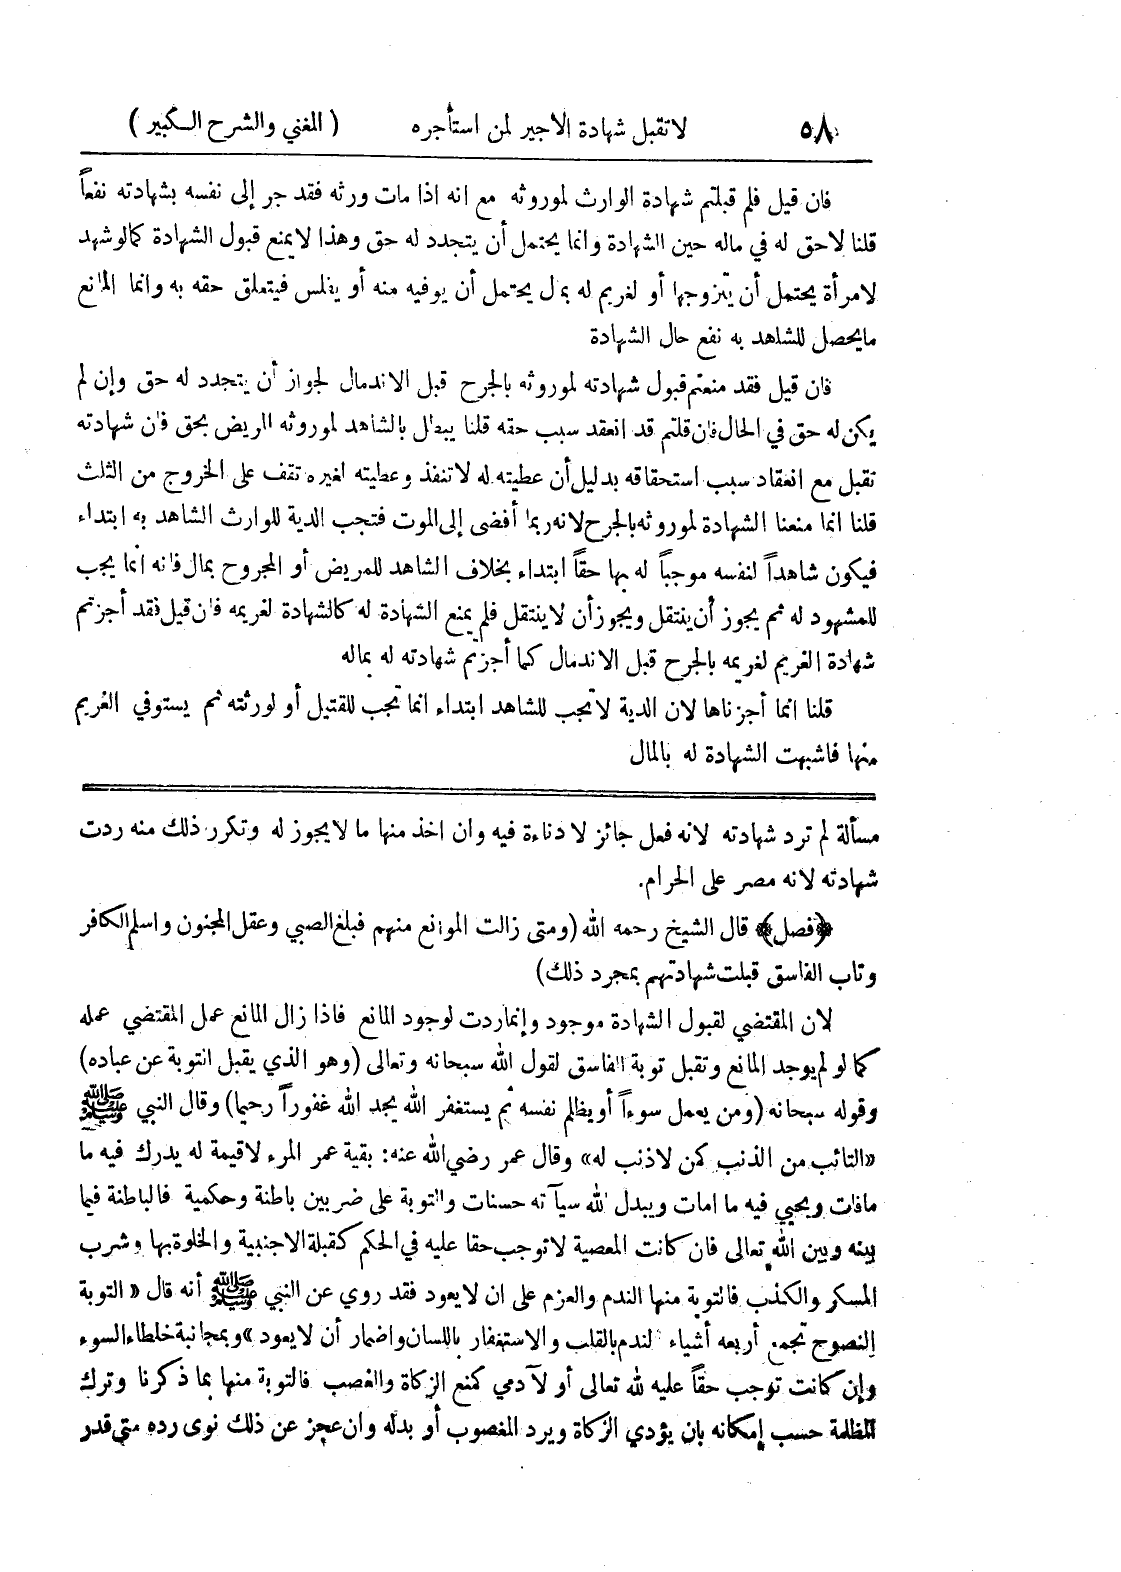 ٥٨ لا تقبل شهادة الاجير لمن استأجره ( المغني والشرح الكبير )
فان قيل فلم قبلتم شهادة الوارث لموروثه مع انه اذا مات ورثه فقد جر إلى نفسه بشهادته نفعاً
قلنا لاحق له في ماله حين الشهادة وانما يحتمل أن يتجدد له حق وهذا لايمنع قبول الشهادة كمالو شهد
لامرأة يحتمل أن يتزوجها أو لغريم له بمال يحتمل أن يوفيه منه أو يفلس فيتعلق حقه به وانما المانع
مايحصل للشاهد به نفع حال الشهادة
فان قيل فقد منعتم قبول شهادته لموروثه بالجرح قبل الاندمال لجواز أن يتجدد له حق وإن لم
يكن له حق في الحال فان قلتم قد انعقد سبب حقه قلنا يبطل بالشاهد لموروثه المريض بحق فان شهادته
تقبل مع انعقاد سبب استحقاقه بدليل أن عطيته له لا تنفذ وعطيته لغيره تقف على الخروج من الثلث
قلنا انما منعنا الشهادة لموروثه بالجرح لانه ربما أفضى إلى الموت فتجب الدية للوارث الشاهد به ابتداء
فيكون شاهداً لنفسه موجباً له بها حقاً ابتداء بخلاف الشاهد للمريض أو المجروح بمال فانه انما يجب
للمشهود له ثم يجوز أن ينتقل ويجوز أن لا ينتقل فلم يمنع الشهادة له كالشهادة لغريمه فان قيل فقد أجزتم
شهادة الغريم لغريمه بالجرح قبل الاندمال كما أجزتم شهادته له بماله
قلنا انما أجزناها لان الدية لا تجب للشاهد ابتداء انما تجب للقتيل أو لورثته ثم يستوفي الغريم
منها فاشبهت الشهادة له بالمال
مسألة لم ترد شهادته لانه فعل جائز لا دناءة فيه وان اخذ منها ما لا يجوز له وتكرر ذلك منه ردت
شهادته لانه مصر على الحرام.
﴿فصل﴾ قال الشيخ رحمه الله (ومتى زالت الموانع منهم فبلغ الصبي وعقل المجنون واسلم الكافر
وتاب الفاسق قبلت شهادتهم بمجرد ذلك)
لان المقتضي لقبول الشهادة موجود وإنما ردت لوجود المانع فاذا زال المانع عمل المقتضي عمله
كما لو لم يوجد المانع وتقبل توبة الفاسق لقول الله سبحانه وتعالى (وهو الذي يقبل التوبة عن عباده)
وقوله سبحانه (ومن يعمل سوءاً أو يظلم نفسه ثم يستغفر الله يجد الله غفوراً رحيما) وقال النبي ﷺ
«التائب من الذنب كمن لا ذنب له» وقال عمر رضي الله عنه: بقية عمر المرء لا قيمة له يدرك فيه ما
مافات ويحيي فيه ما امات ويبدل الله سيآته حسنات والتوبة على ضربين باطنة وحكمية فالباطنة فيما
بينه وبين الله تعالى فان كانت المعصية لا توجب حقا عليه في الحكم كقبلة الاجنبية والخلوة بها وشرب
المسكر والكذب فالتوبة منها الندم والعزم على ان لا يعود فقد روي عن النبي ﷺ أنه قال « التوبة
النصوح تجمع أربعه أشياء الندم بالقلب والاستغفار باللسان واضمار أن لا يعود » وبمجانبة خلطاء السوء
وإن كانت توجب حقاً عليه لله تعالى أو لآدمي كمنع الزكاة والغصب فالتوبة منها بما ذكرنا وترك
المظلمة حسب إمكانه بان يؤدي الزكاة ويرد المغصوب أو بدله وان عجز عن ذلك نوى رده متى قدر